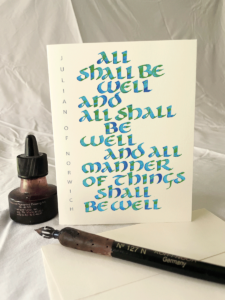 JULIAN OF NORWICH
ALL
SHALL BE
WELL
AND
ALL SHALL
BE
WELL
AND ALL
MANNER
OF THINGS
SHALL
BE WELL
Nº 127 N
Germany